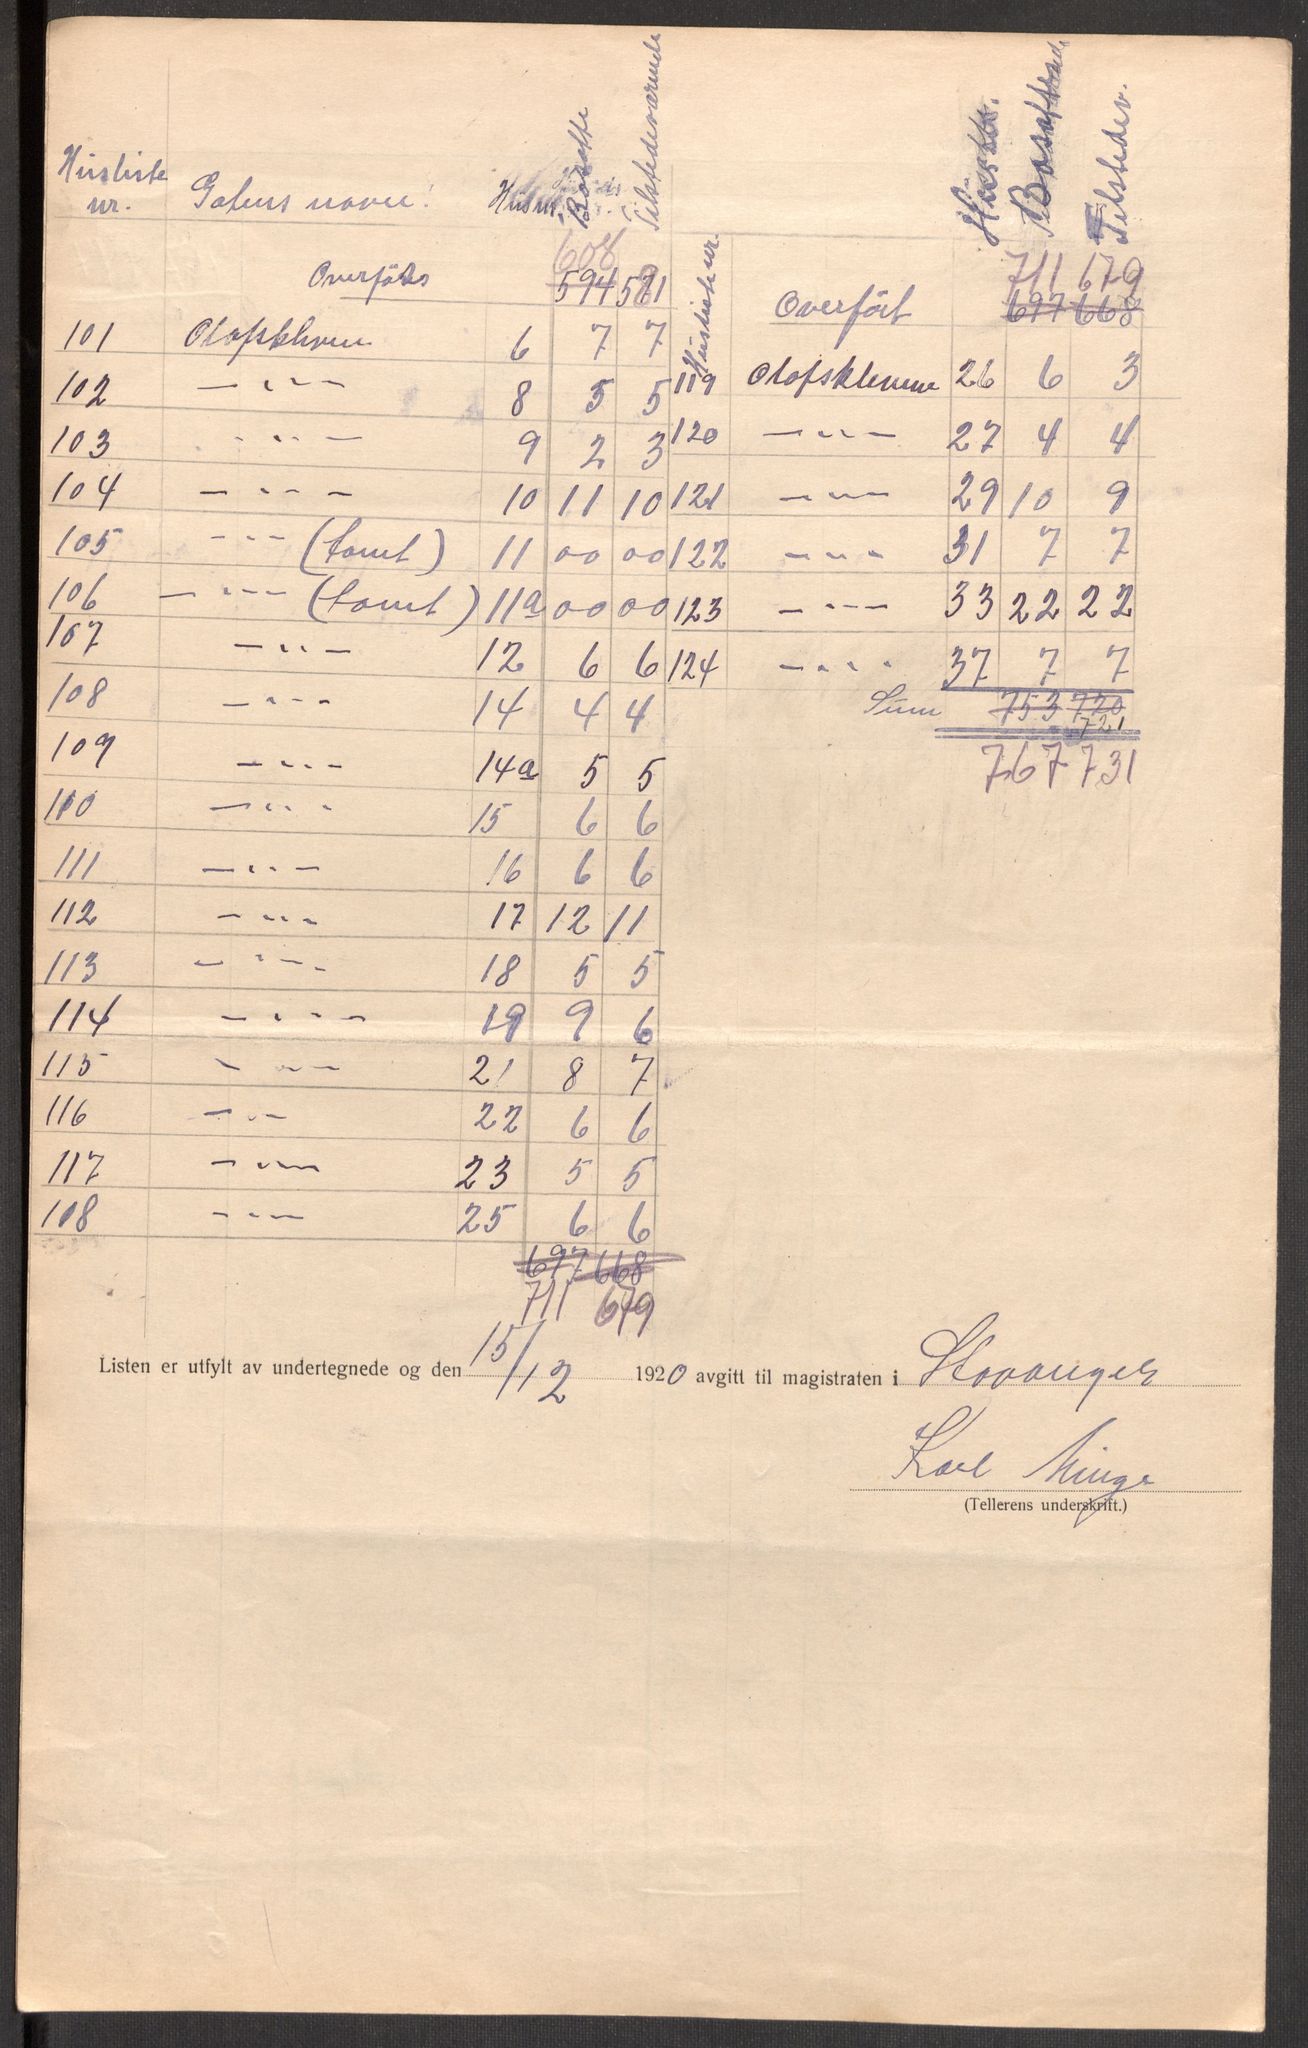 Husliste nr. Gatens navn: Husnr. Bosatte Tilstedeværende
608
Overföres 594 581
101 Olafskleven 6 7 7
102 — " — 8 5 5
103 — " — 9 2 3
104 — " — 10 11 10
105 — " — (tomt) 11 00 00
106 — " — (tomt) 11a 00 00
107 — " — 12 6 6
108 — " — 14 4 4
109 — " — 14a 5 5
110 — " — 15 6 6
111 — " — 16 6 6
112 — " — 17 12 11
113 — " — 18 5 5
114 — " — 19 9 6
115 — " — 21 8 7
116 — " — 22 6 6
117 — " — 23 5 5
108 — " — 25 6 6
697 668
711 679
Husliste nr. Husnr. Bosatte Tilstedev.
711 679
Overfört 697 668
119 Olafsklevene 26 6 3
120 — " — 27 4 4
121 — " — 29 10 9
122 — " — 31 7 7
123 — " — 33 22 22
124 — " — 37 7 7
Sum 753 720
721
767 731
Listen er utfylt av undertegnede og den 15/12 1920 avgitt til magistraten i Stavanger
Karl Minge
(Tellerens underskrift.)